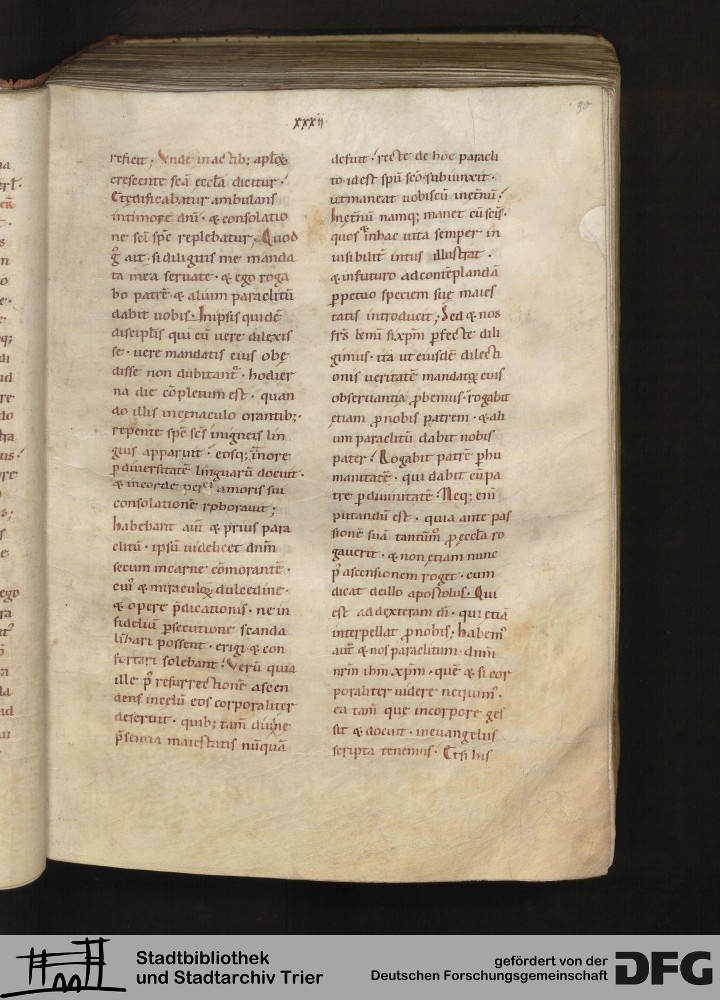 xxxii
30
reficit; Vnde in actib; apl̅oꝝ
crescente sc̅a eccl̅a dicitur.
Et ędificabatur ambulans
in timore dn̅i. & consolatio
ne sc̅i sp̅c replebatur; Quod
g̊ ait. si diligitis me manda
ta mea seruate. & ego roga
bo patrē & alium paraclitū
dabit uobis. In ipsis quidē
discipl̅is qui eū uere dilexis
se. uere mandatis eius obę
disse non dubitant᷑. hodier
na die cōpletum est. quan
do illis in cęnaculo orantib;.
repente sp̅c sc̅s in igneis lin
guis apparuit. eosq; in ore
ꝑ diuersitatē linguarū docuit.
& in corde amoris sui
consolationē roborauit;
habebant aut̅ & prius para
clitū. ipsū uidelicet dn̅m
secum in carne cōmorantē.
cui᷒ & miraculoꝝ dulcedine.
& opere p̅dicationis. ne in
fideliū ꝑsecutione scanda
lizari possent. erigi & con
fortari solebant. Verū quia
ille p᷒ resurrectionē ascen
dens in cęlū eos corporaliter
deseruit. quib; tam̅ diuinę
p̅sentia maiestatis nūquā
defuit. recte de hoc paracli
to id est sp̅u sc̅o subiunxit.
ut maneat uobiscū in ęt̅nū.
In ęt̅nū namq; manet cū sc̅is.
quos & in hac uita semper in
uisibilit̅ intus illustrat.
& in futuro ad contēplandā
ꝑpetuo speciem suę maies
tatis introducit; Sed & nos
fr̅s km̅i si xp̅m ꝑfecte dili
gimus. ita ut eiusdē dilecti
onis ueritatē mandatoꝝ eius
obseruantia ꝓbemus. rogabit
etiam ꝓ nobis patrem. & ali
um paraclitū dabit nobis
pater. Rogabit patrē ꝑ hu
manitatē. qui dabit cū pa
tre ꝑ diuinitatē. Neq; eni̅
putandū est. quia ante pas
sionē suā tantūm ꝓ eccl̅a ro
gauerit. & non etiam nunc
p᷒ ascensionem roget. cum
dicat de illo apostolus. Qui
est ad dexteram di̅. qui etiā
interpellat ꝓ nobis; habem᷒
aut̅ & nos paraclitum. dn̅m
nr̅m ih̅m xp̅m. quē & si cor
poraliter uidere nequim᷒.
ea tam̅ que in corpore ges
sit & docuit. in euangeliis
scripta tenemus. Et si his
Stadtbibliothek
und Stadtarchiv Trier
gefördert von der
Deutschen Forschungsgemeinschaft
DFG